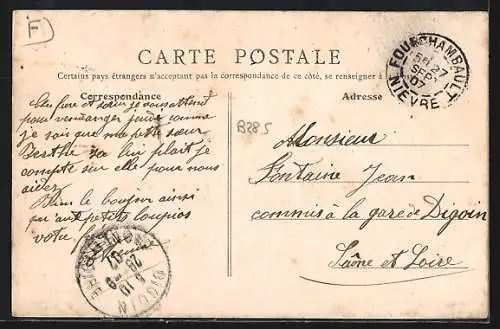 F
CARTE POSTALE
Certains pays étrangers n'acceptant pas la correspondance de ce côté, se renseigner à
Correspondance
Adresse
FOURCHAMBAULT
27
SEPT
07
NIEVRE
B285
frère et sœur je vous attend
pour vendanger jeudi comme
je sais que ma petite sœur
Berthe si lui plait je
compte sur elle pour nous
aider
Bien le bonjour ainsi
qu'aux petits loupios
votre
Monsieur
Fontaine Jean
commis à la gare de Digoin
Saône et Loire
DIGOIN
28 - 9
07